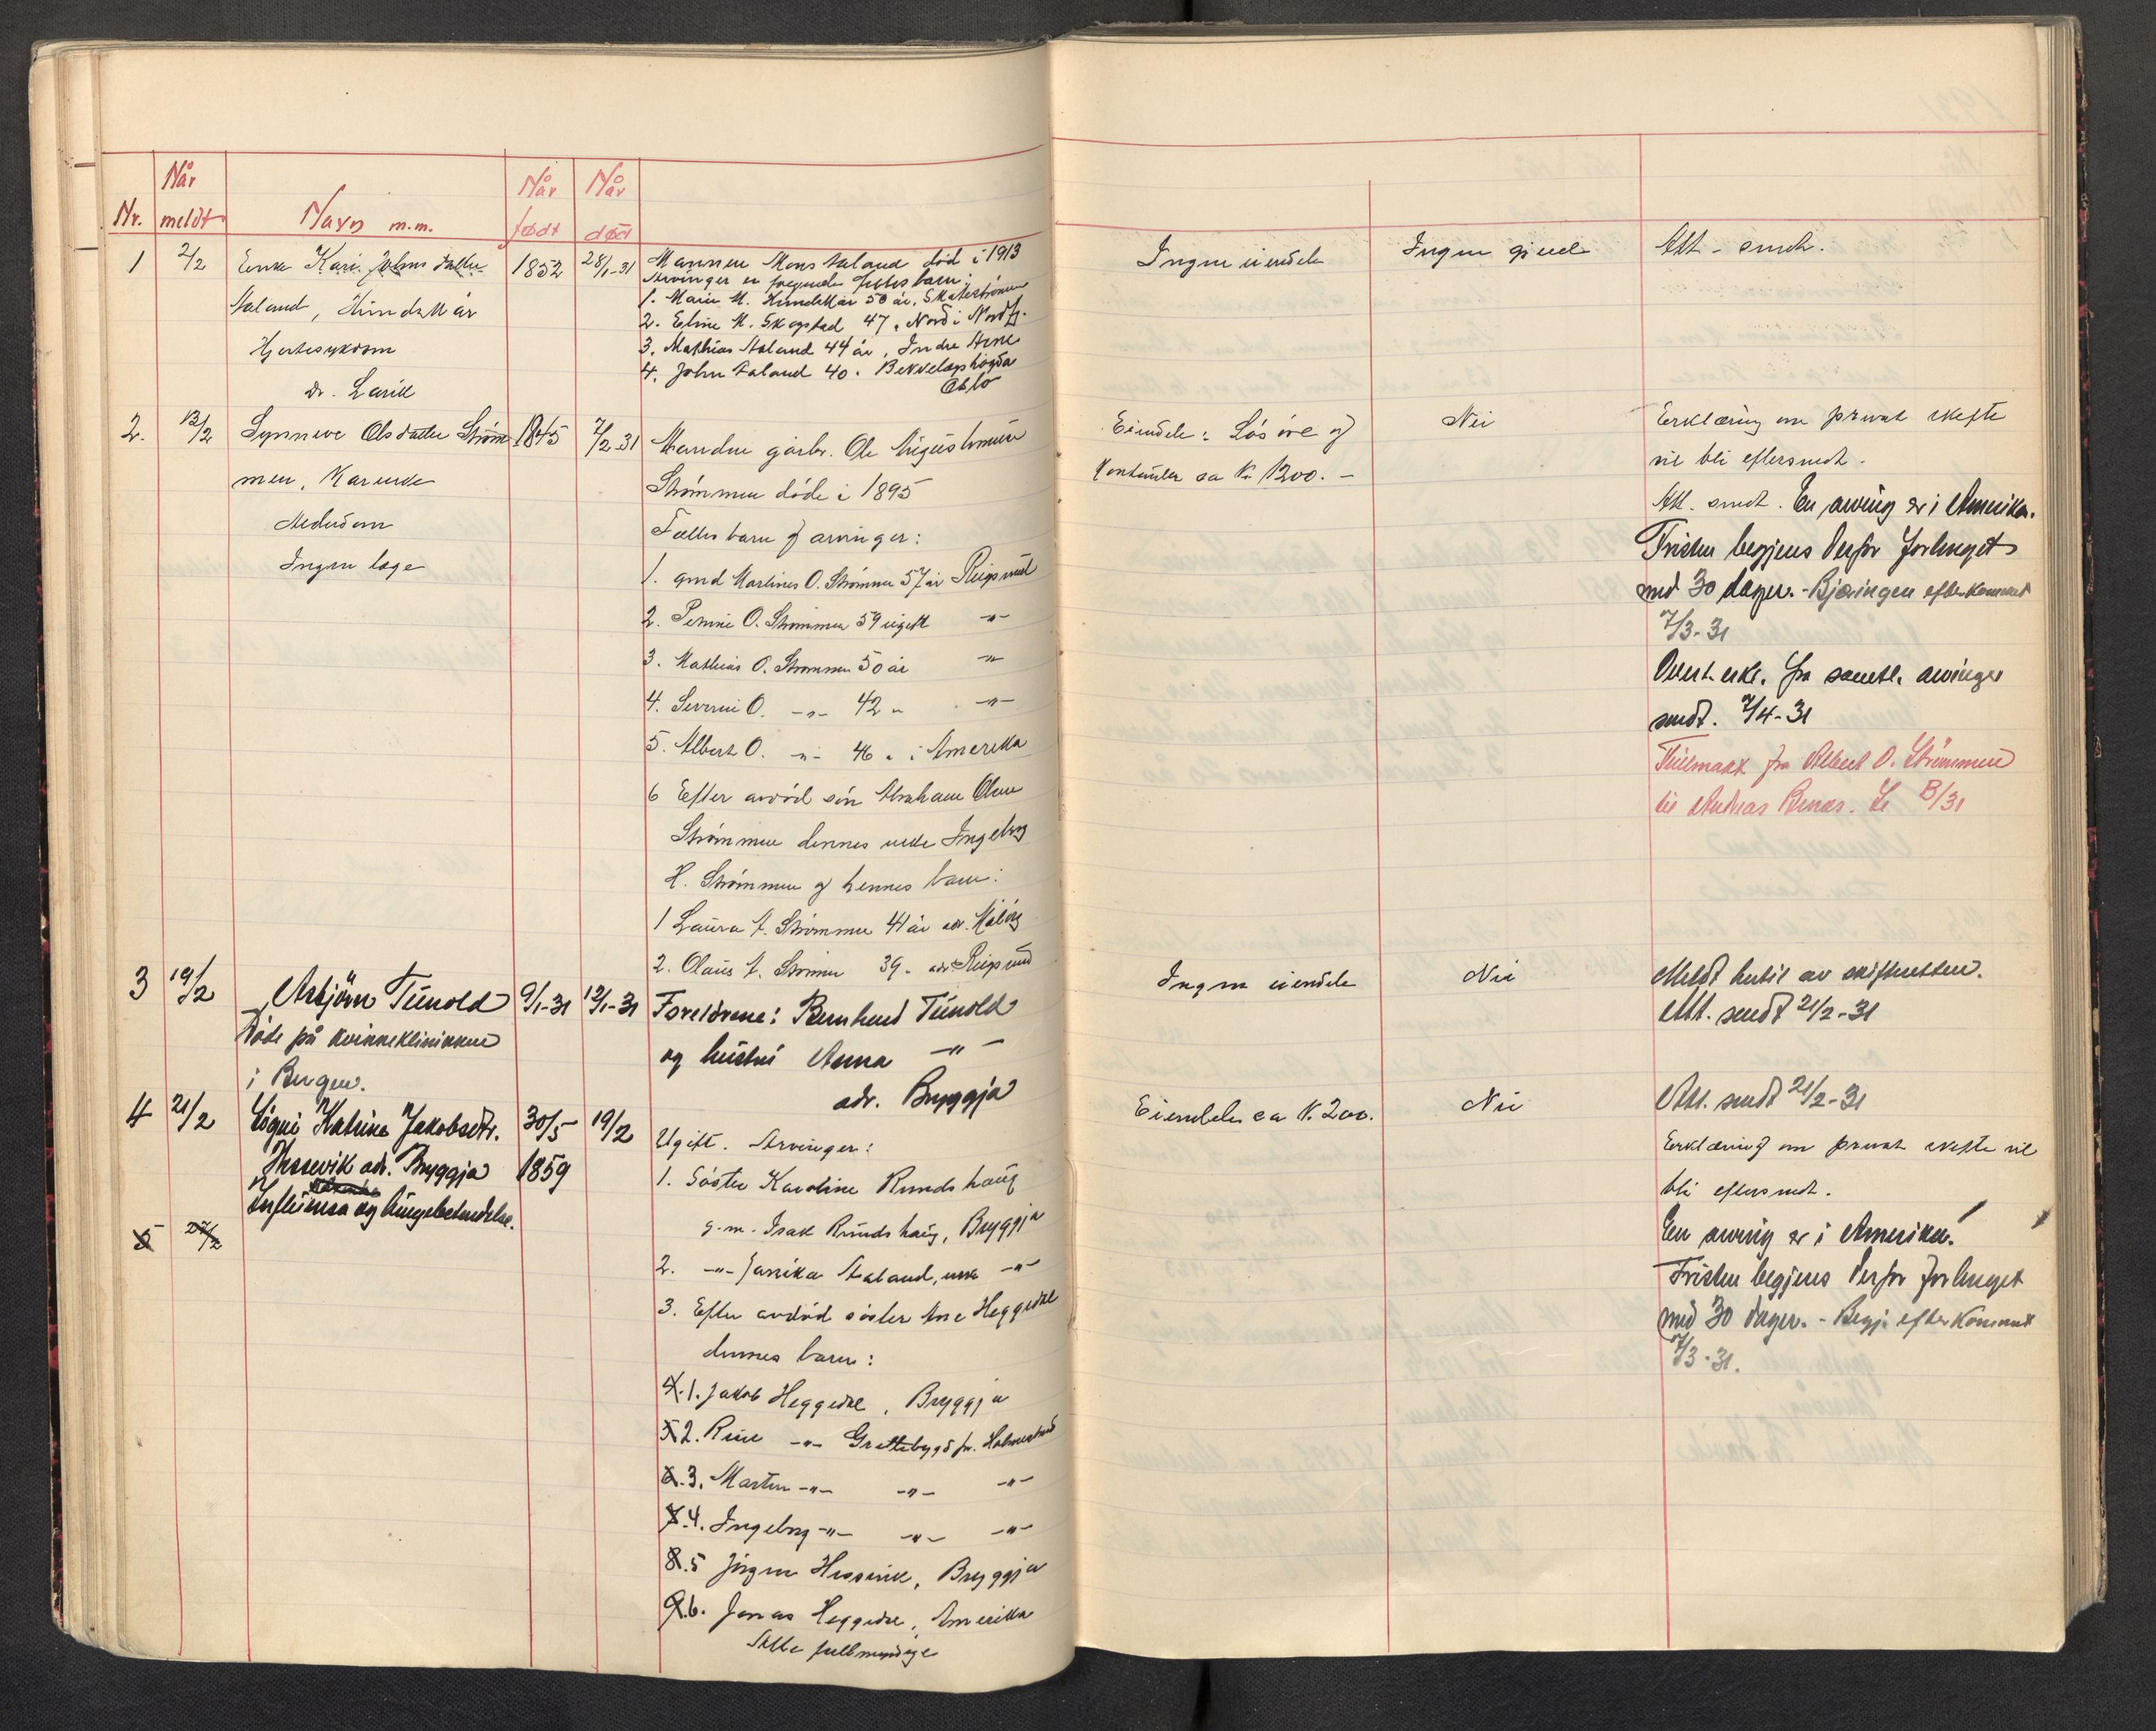 Når Når Når
Nr. meldt Navn m.m. født død
1 2/2 Enke Kari Johns datter 1852 28/1-31 Mannen Mons Aaland död i 1913 Ingen eiendele Ingen gjeld Att. sendt.
Aaland, Hundskår Arvinger er følgende felles barn:
Hjertesykdom 1. Marie M. Hundskår 50 år, Skatestrømmen
dr. Larik 2. Eline M. Skogstad 47 " Nord i Nordfj.
3. Mathias Aaland 44 år, Indre Arne
4. John Aaland 40 " Bekkelagshøgda
Oslo
2. 13/2 Synneve Olsdatter Strøm 1845 7/2-31 Manden gårbr. Ole Augustinusen Eiendele: Løsøre og Nei Erklæring om privat skifte
men, Kårenke Strømmen døde i 1895 Kontanter ca Kr 1200.- vil bli eftersendt.
Alderdom Felles barn og arvinger: Att. sendt. En arving er i Amerika.
Ingen læge 1. gmd Martines O. Strømmen 57 år Rugsund Fristen begjæres derfor forlenget
med 30 dager. - Bjæringen efterkommet
2. O. Strømmen 59 ugift -"- 7/3-31
3. Mathias O. Strømmen 50 år -"- erkl. fra samtl. arvinger
4. Severin O. -"- 42 " -"- sendt. 7/4-31
5. Albert O. -"- 46 " i Amerika Fullmakt fra Albert O. Strømmen
6 Efter avdöd sön Abraham Olsen til Andreas
Strømmen dennes enke Ingeborg
H. Strømmen og hennes barn:
1 Laura A. Strømmen 41 år adr. Måløy
2. Olaus A. Strømmen 39 " adr. Rugsund
3 19/2 Asbjörn Tunold 9/1-31 12/1-31 Foreldrene: Bernhard Tunold Ingen eiendele Nei Meldt hertil av skifteretten.
Døde på kvinneklinikken og hustru Anna -"- Att. sendt 21/2-31
i Bergen. adr. Bryggja
4 21/2 Katrine Jakobsdtr. 30/5 19/2 Ugift. Arvinger: Eiendele ca Kr. 200. Nei Att. sendt 21/2-31
Hessevik adr. Bryggja 1859 1. Söster Karoline Rundshaug Erklæring om privat skifte vil
Influensa og lungebetendelse. g.m. Isak Rundshaug, Bryggja bli eftersendt.
5 27/2 2. -"- Janika Aaland, enke -"- En arving er i Amerika.
3. Efter avdöd söster Ane Heggedal Fristen begjæres derfor forlenget
dennes barn: med 30 dager. - Begj. efterkommet
4.1. Jakob Heggedal, Bryggja 7/3-31.
5 2. Rine -"- Grettebygd pr. Holmestrand
6.3. Marten -"- -"- -"-
7.4. Ingeborg -"- -"- -"-
8.5 Jörgen Hessevik, Bryggja
9.6. Jonas Heggedal, Amerika
Alle fullmyndige